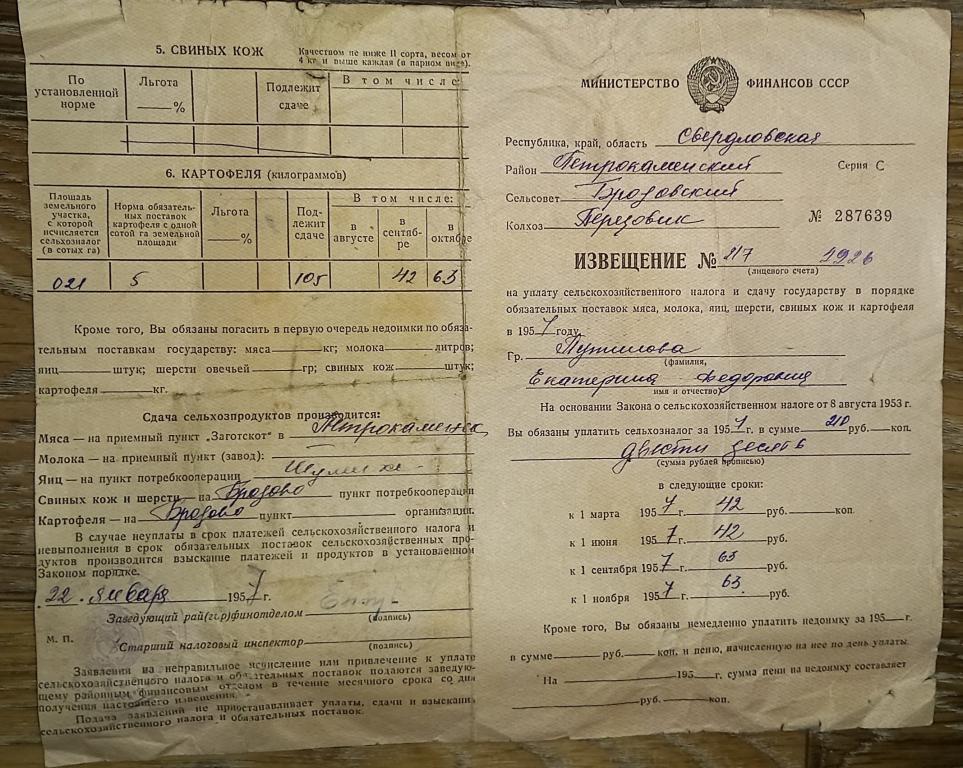 5. СВИНЫХ КОЖ
Качеством не ниже II сорта, весом от 4 кг и выше каждая (в парном виде).
По установленной норме
Льгота
—%
Подлежит сдаче
В том числе:
6. КАРТОФЕЛЯ (килограммов)
Площадь земельного участка, с которой исчисляется сельхозналог (в сотых га)
Норма обязательных поставок картофеля с одной сотой га земельной площади
Льгота
—%
Подлежит сдаче
В том числе:
в августе
в сентябре
в октябре
021 5 105 42 63
Кроме того, Вы обязаны погасить в первую очередь недоимки по обяза-
тельным поставкам государству: мяса кг; молока литров;
яиц штук; шерсти овечьей гр; свиных кож штук;
картофеля кг.
Сдача сельхозпродуктов производится:
Мяса — на приемный пункт „Заготскот" в Петрокаменск
Молока — на приемный пункт (завод):
Яиц — на пункт потребкооперации
Свиных кож и шерсти — на Бродово пункт потребкооперации
Картофеля — на Бродово пункт организации.
В случае неуплаты в срок платежей сельскохозяйственного налога и
невыполнения в срок обязательных поставок сельскохозяйственных про-
дуктов производится взыскание платежей и продуктов в установленном
Законом порядке.
22 января 1957 г.
Заведующий рай(гор)финотделом
(подпись)
М. П.
Старший налоговый инспектор
(подпись)
Заявления на неправильное исчисление или привлечение к уплате
сельскохозяйственного налога и обязательных поставок подаются заведую-
щему районным финансовым отделом в течение месячного срока со дня
получения настоящего извещения.
Подача заявлений не приостанавливает уплаты, сдачи и взыскания
сельскохозяйственного налога и обязательных поставок.
МИНИСТЕРСТВО ФИНАНСОВ СССР
Республика, край, область Свердловская
Район Петрокаменский Серия С
Сельсовет Бродовский
Колхоз Передовик № 287639
ИЗВЕЩЕНИЕ № 217 4926
(лицевого счета)
на уплату сельскохозяйственного налога и сдачу государству в порядке
обязательных поставок мяса, молока, яиц, шерсти, свиных кож и картофеля
в 1957 году.
Гр. Путилова
(фамилия,
Екатерина Федоровна
имя и отчество)
На основании Закона о сельскохозяйственном налоге от 8 августа 1953 г.
Вы обязаны уплатить сельхозналог за 1957 г. в сумме 210 руб. коп.
двести десять
(сумма рублей прописью)
в следующие сроки:
к 1 марта 1957 г. 42 руб. коп.
к 1 июня 1957 г. 42 руб.
к 1 сентября 1957 г. 63 руб.
к 1 ноября 1957 г. 63. руб.
Кроме того, Вы обязаны немедленно уплатить недоимку за 195 г.
в сумме руб. коп. и пеню, начисленную на нее по день уплаты.
На 195 г. сумма пени на недоимку составляет
руб. коп.